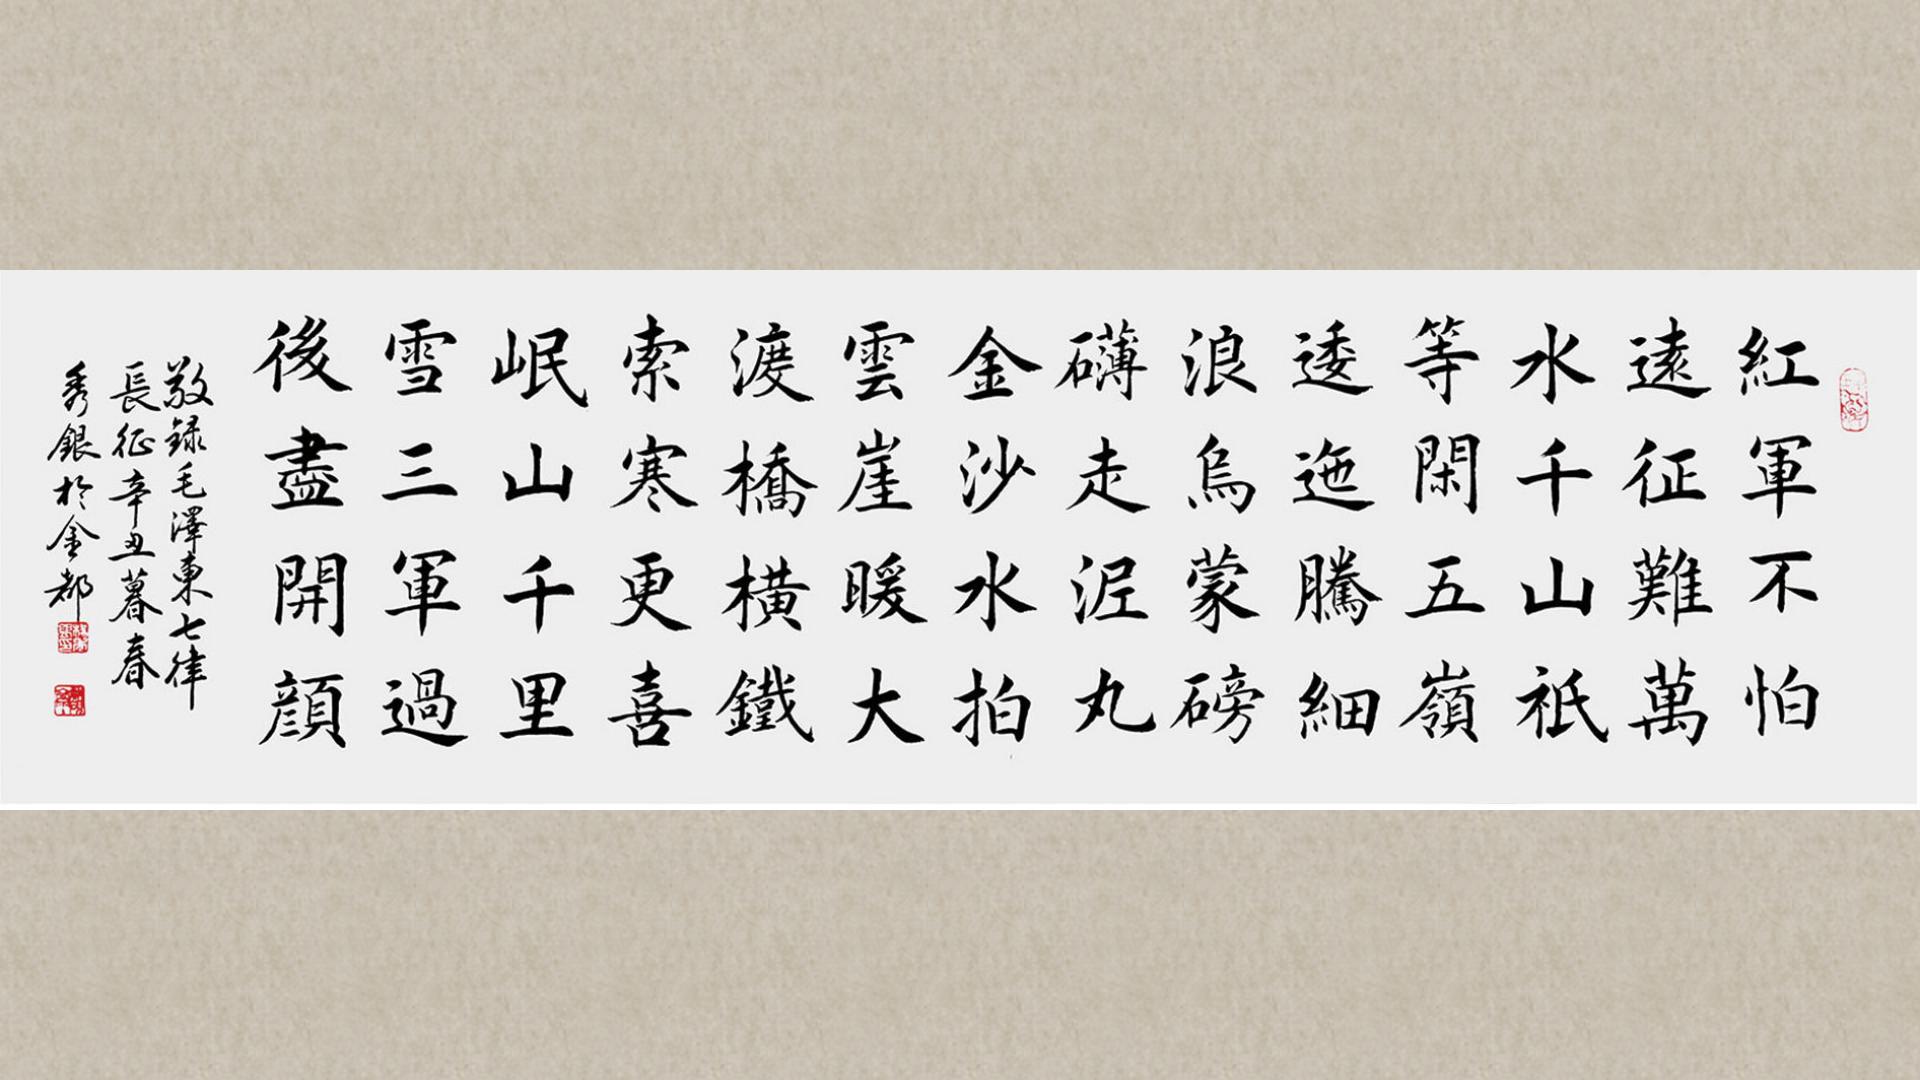 紅軍不怕
遠征難萬
水千山祇
等閑五嶺
逶迤騰細
浪烏蒙磅
礴走泥丸
金沙水拍
雲崖暖大
渡橋橫鐵
索寒更喜
岷山千里
雪三軍過
後盡開顔
敬録毛澤東七律
長征辛丑暮春
秀銀於金都